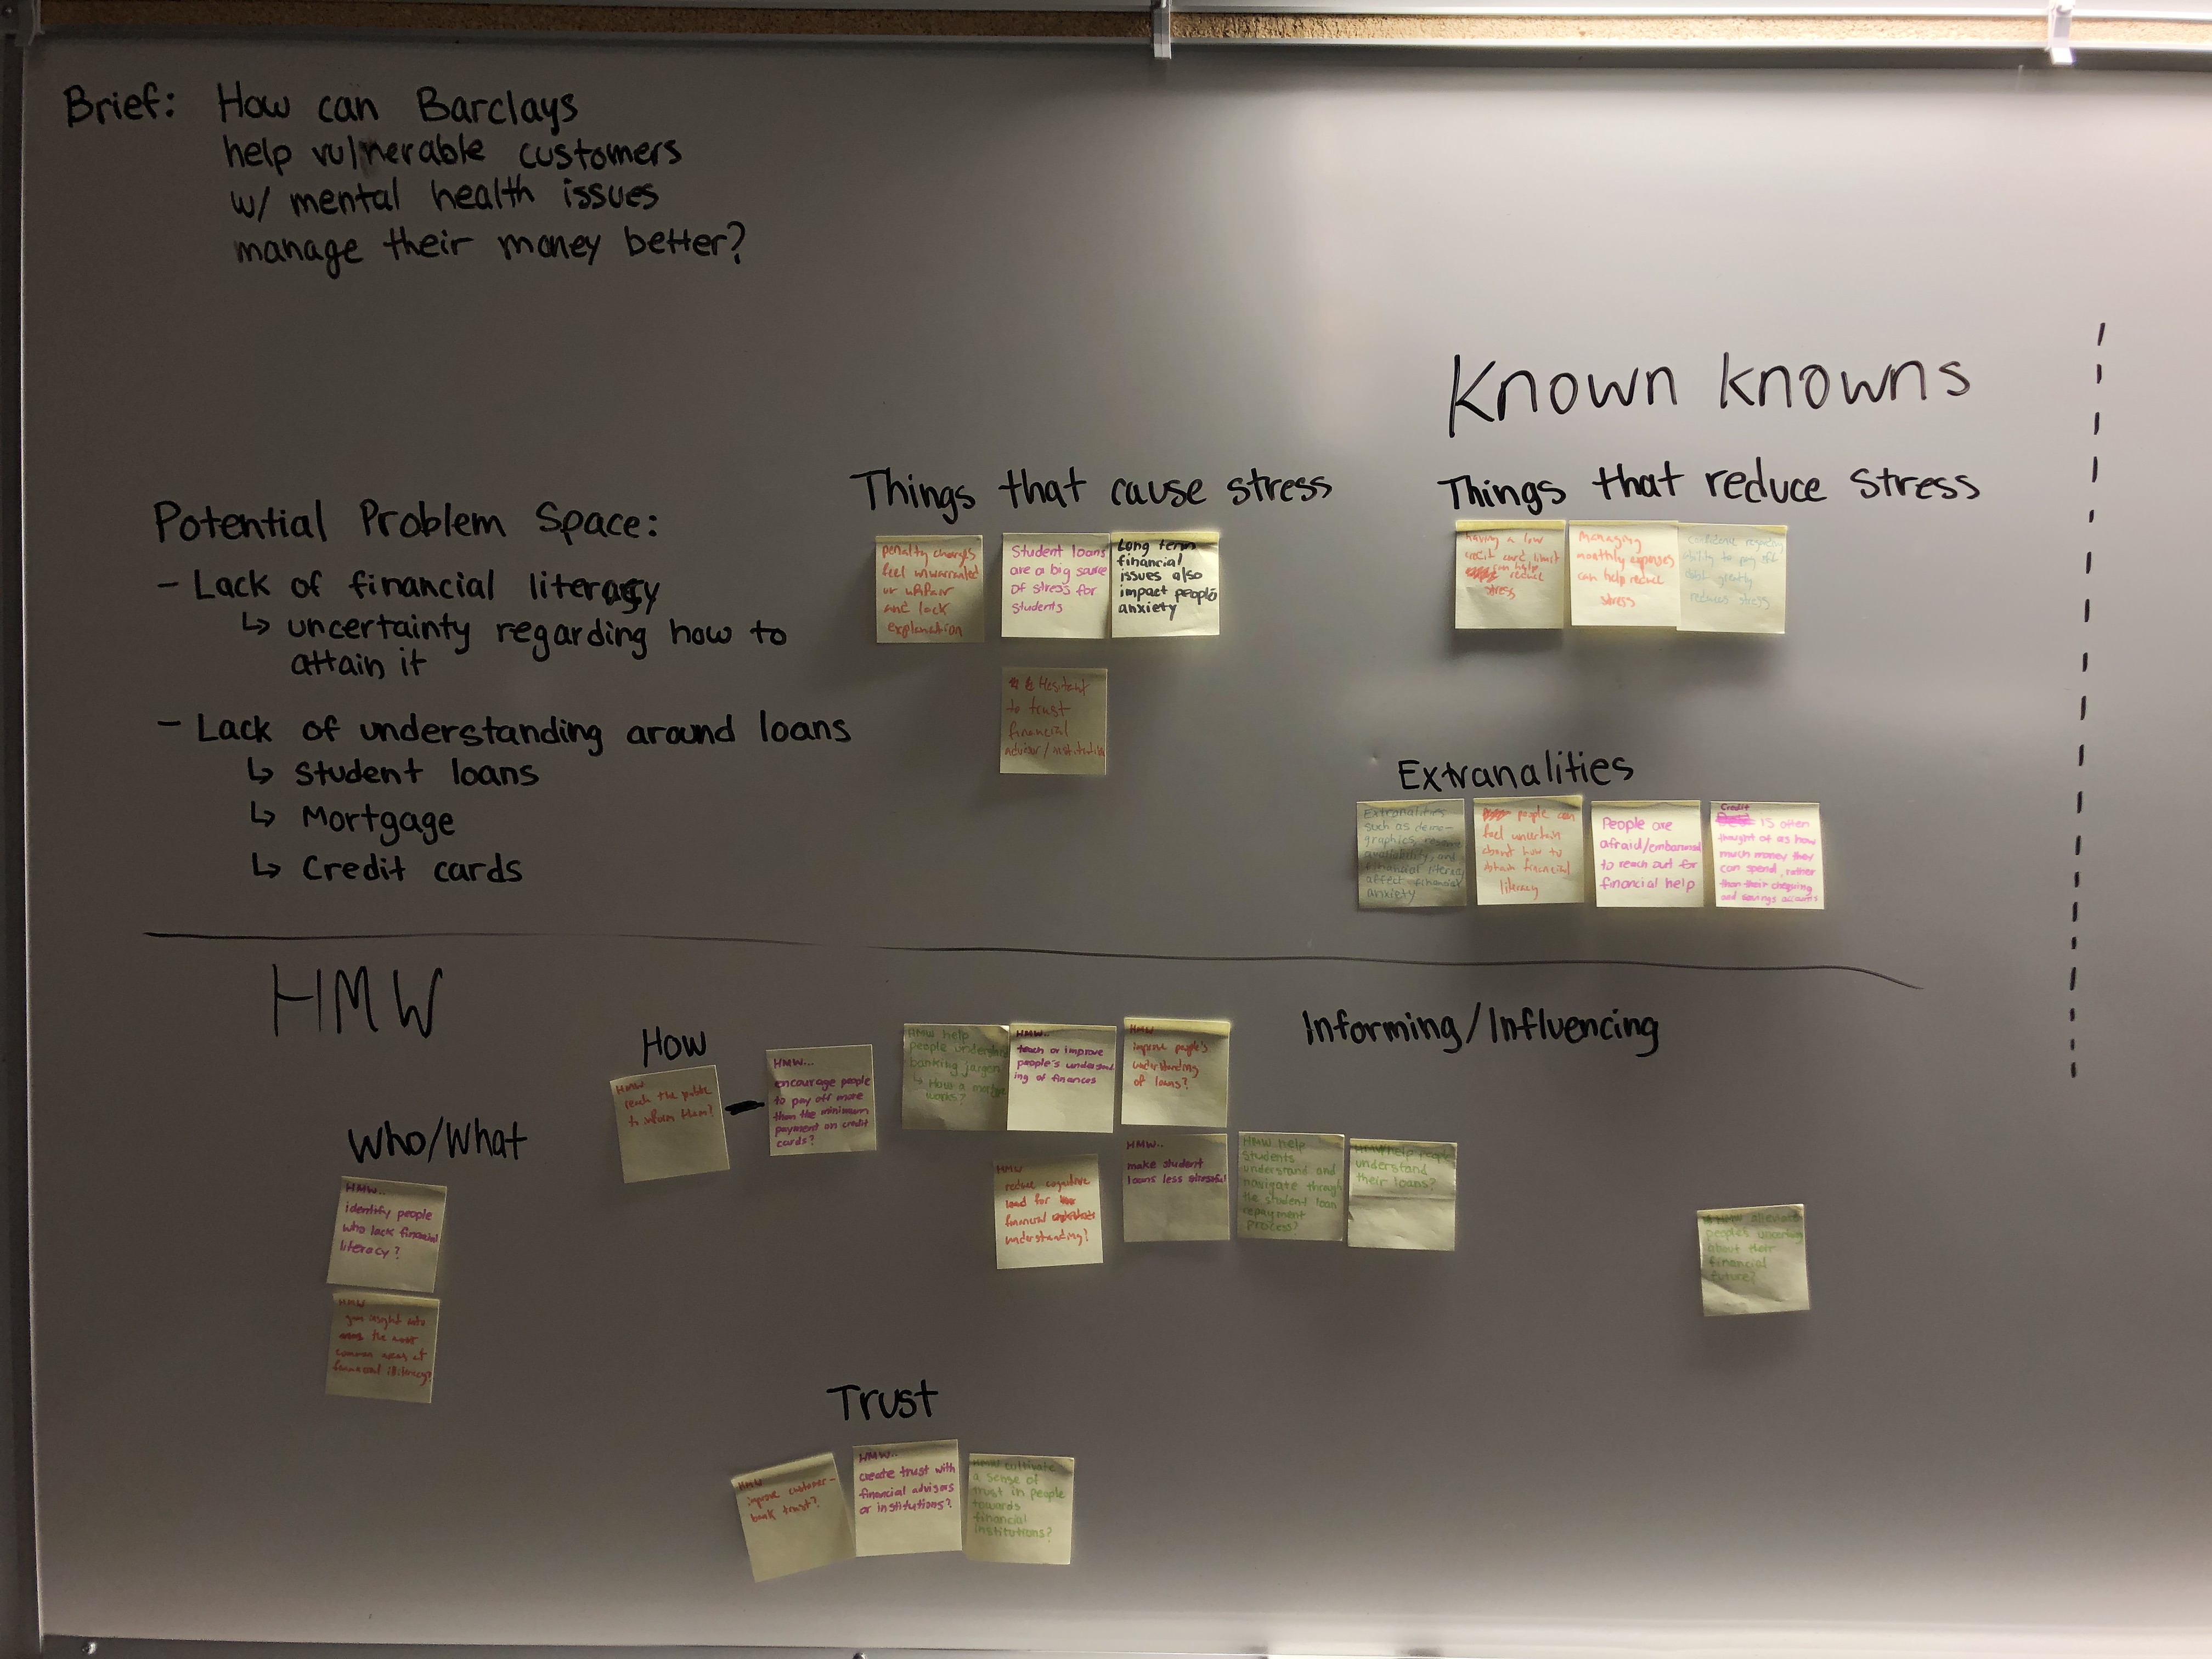 Brief: How can Barclays
help vulnerable customers
w/ mental health issues
manage their money better?
Known knowns
Potential Problem Space:
- Lack of financial literacy
↳ uncertainty regarding how to
attain it
- Lack of understanding around loans
↳ student loans
↳ Mortgage
↳ Credit cards
Things that cause stress
penalty charges
feel unwarranted
or unfair
and lack
explanation
Student loans
are a big source
of stress for
students
Long term
financial
issues also
impact people
anxiety
Hesitent
to trust
financial
advisor/institution
Things that reduce stress
having a low
credit card limit
can help
reduce
stress
Managing
monthly expenses
can help reduce
stress
ability to pay off
debt greatly
reduces stress
Extranalities
Extranalities
such as demo-
graphics,
availability, and
financial literacy
affect financial
anxiety
people can
feel uncertain
about how to
obtain financial
literacy
People are
afraid/embarrassed
to reach out for
financial help
Credit
is often
thought of as how
much money they
can spend, rather
than their chequing
and savings accounts
HMW
Who/What
HMW..
identify people
who lack financial
literacy?
HMW
gain insight into
the most
common areas of
financial illiteracy?
How
HMW
reach the public
to inform them?
HMW...
encourage people
to pay off more
than the minimum
payment on credit
cards?
Informing/Influencing
HMW help
people understand
banking jargon
↳ How a mortgage
works?
HMW..
teach or improve
people's understand
ing of finances
HMW
improve people's
understanding
of loans?
HMW
reduce cognitive
load for
financial
understanding?
HMW..
make student
loans less stressful
HMW help
students
understand and
navigate through
the student loan
repayment
process?
HMW help people
understand
their loans?
HMW alleviate
people's
about their
financial
future?
Trust
HMW
improve customer-
bank trust?
HMW..
create trust with
financial advisors
or institutions?
HMW cultivate
a sense of
trust in people
towards
financial
institutions?